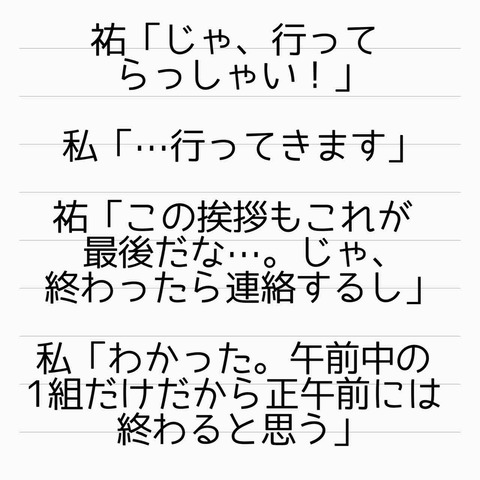 祐「じゃ、行って
らっしゃい！」
私「…行ってきます」
祐「この挨拶もこれが
最後だな…。じゃ、
終わったら連絡するし」
私「わかった。午前中の
1組だけだから正午前には
終わると思う」